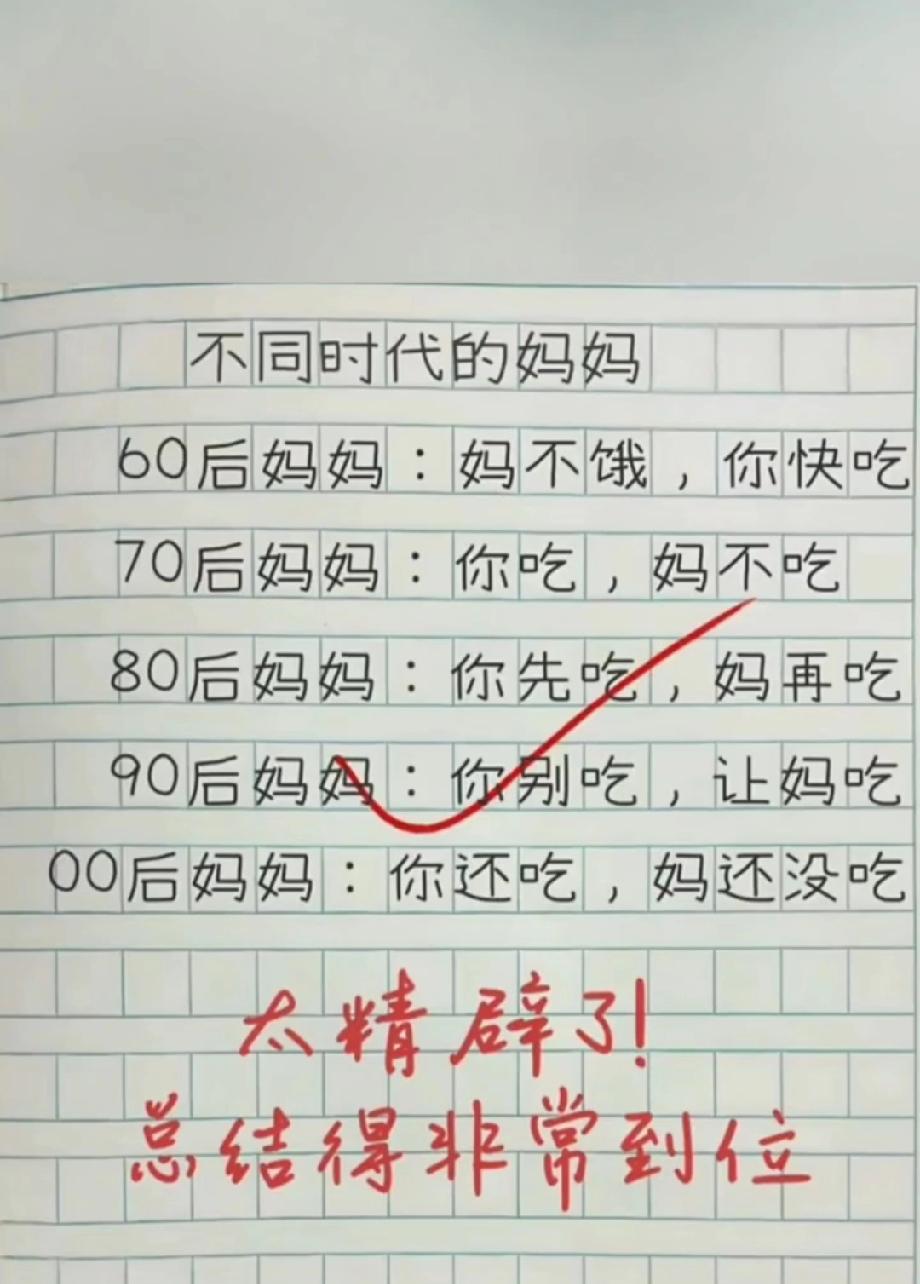 不同时代的妈妈
60后妈妈：妈不饿，你快吃
70后妈妈：你吃，妈不吃
80后妈妈：你先吃，妈再吃
90后妈妈：你别吃，让妈吃
00后妈妈：你还吃，妈还没吃
太精辟了！
总结得非常到位